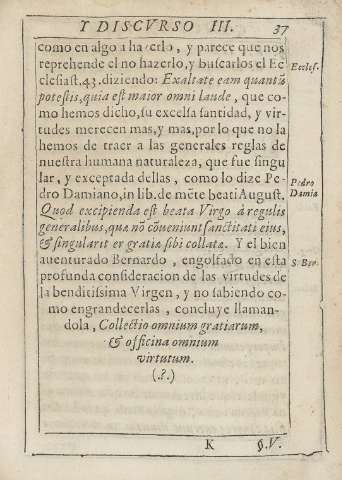 Y DISCVRSO III. 37
como en algo a hazerlo, y parece que nos
reprehende el no hazerlo, y buscarlos el Ec
clesiast. 43. diziendo: Exaltate eam quantũ
potestis, quia est maior omni laude, que co-
mo hemos dicho, su excelsa santidad, y vir-
tudes merecen mas, y mas, por lo que no la
hemos de traer a las generales reglas de
nuestra humana naturaleza, que fue singu
lar, y exceptada dellas, como lo dize Pe-
dro Damiano, in lib. de mẽte beati August.
Quod excipienda est beata Virgo á regulis
generalibus, qua nõ cõueniunt sanctitati eius,
& singularit er gratiæ sibi collatæ. Y el bien
auenturado Bernardo, engolfado en esta
profunda consideracion de las virtudes de
la benditissima Virgen, y no sabiendo co-
mo engrandecerlas, concluye llaman-
dola, Collectio omnium gratiarum,
& officina omnium
virtutum.
(.?.)
Eccles.
Pedro
Damia
S. Ber.
K §.V.